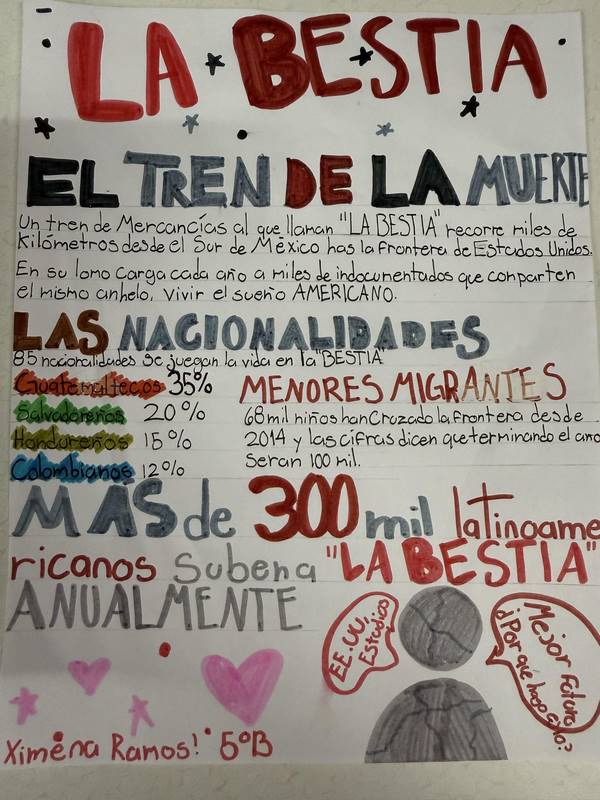 LA BESTIA
EL TREN DE LA MUERTE
Un tren de Mercancías al que llaman "LA BESTIA" recorre miles de
Kilómetros desde el Sur de México has la frontera de Estados Unidos.
En su lomo Carga cada año a miles de indocumentados que conparten
el mismo anhelo, vivir el sueño AMERICANO.
LAS NACIONALIDADES
85 nacionalidades se juegan la vida en la "BESTIA"
Guatemaltecos 35%
Salvadoreños 20%
Hondureños 15%
Colombianos 12%
MENORES MIGRANTES
68 mil niños han Cruzado la frontera desde
2014 y las cifras dicen que terminando el año
Seran 100 mil.
MÁS de 300 mil latinoame
ricanos Suben a "LA BESTIA"
ANUALMENTE
EE.UU,
Estudios
Mejor Futuro
¿Por qué hago esto?
Ximena Ramos! 5°B